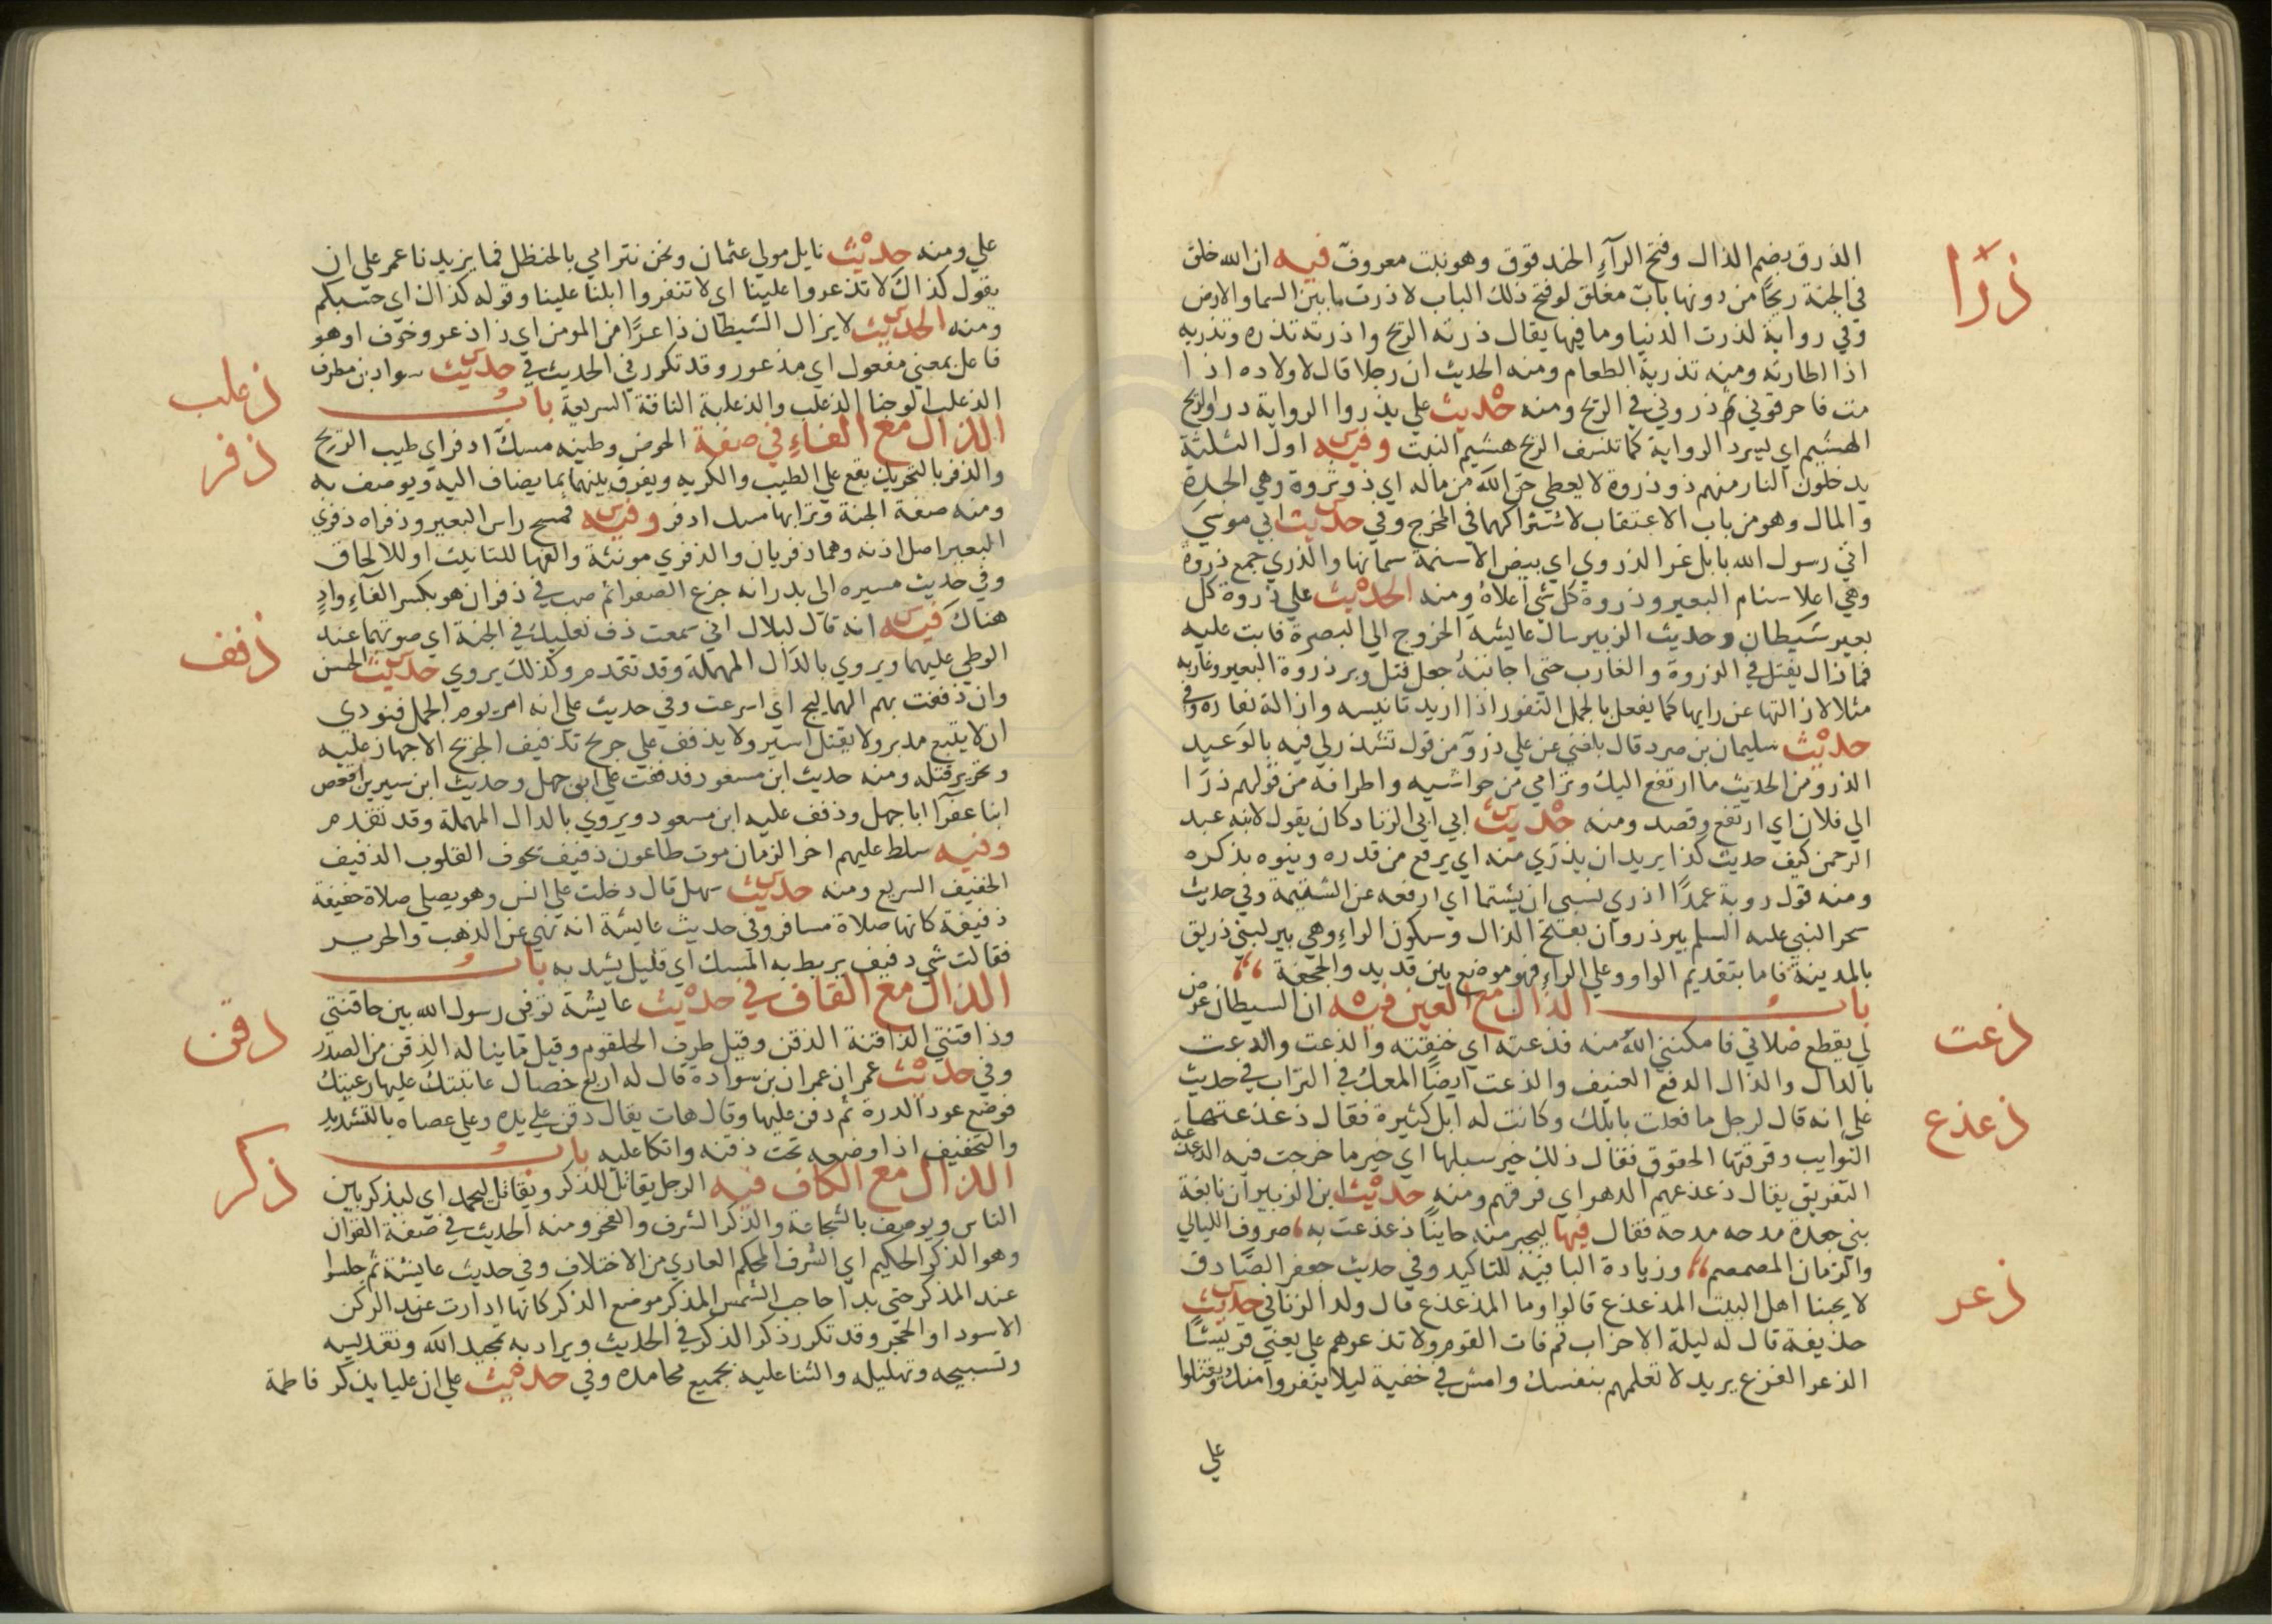 الذرق بضم الذال وفتح الرآء الحندقوق وهو نبت معروف فيه ان الله خلق
ذرا
في الجنة ريحًا من دونها باب مغلق لو فتح ذلك الباب لاذرت ما بين السما والارض
وفي رواية لذرت الدنيا وما فيها يقال ذرته الريح واذرته تذره وتذريه
اذا اطارته ومنه تذرية الطعام ومنه الحديث ان رجلا قال لاولاده اذا
مت فاحرقوني ثم ذروني في الريح ومنه حديث علي يذروا الرواية ذرو الريح
الهشيم اي يسرد الرواية كما تنسف الريح هشيم النبت وفيه اول الثلثة
يدخلون النار منهم ذو ذروة لا يعطي حق الله من ماله اي ذو ثروة وهي الجدة
والمال وهو من باب الاعتقاب لاشتراكهما في المخرج وفي حديث ابي موسي
اتي رسول الله بابل غر الذروي اي بيض الاسنمة سمانها والذري جمع ذروة
وهي اعلا سنام البعير وذروة كل شي اعلاه ومنه الحديث علي ذروة كل
بعير شيطان وحديث الزبير سال عايشة الخروج الي البصرة فابت عليه
فما زال يفتل في الذروة والغارب حتي اجابته جعل فتل وبر ذروة البعير وغاربه
مثلا لازالتها عن رايها كما يفعل بالجمل النفور اذا اريد تانيسه وازالة نفاره وفي
حديث سليمان بن صرد قال بلغني عن علي ذرو من قول تشذر لي فيه بالوعيد
الذرو من الحديث ما ارتفع اليك وترامي من حواشيه واطرافه من قولهم ذرا
الي فلان اي ارتفع وقصد ومنه حديث ابي ابي الزناد كان يقول لابنه عبد
الرحمن كيف حديث كذا يريد ان يذري منه اي يرفع من قدره وينوه بذكره
ومنه قول روبة عمدًا اذري نسبي ان يشتما اي ارفعه عن الشتيمة وفي حديث
سحر النبي عليه السلم بير ذروان بفتح الذال وسكون الراء وهي بير لبني ذريق
بالمدينة فاما بتقديم الواو وعلي الراء فهو موضع بين قديد والجحفة
باب الذال مع العين فيه ان الشيطان عرض
ذعت
لي يقطع صلاتي فامكنني الله منه فذعته اي خنقته والذعت والدعت
بالدال والذال الدفع العنيف والذعت ايضًا المعك في التراب في حديث
ذعذع
علي انه قال لرجل ما فعلت بابلك وكانت له ابل كثيرة فقال ذعذعتها
النوايب وفرقتها الحقوق فقال ذلك خير سبلها اي خير ما خرجت فيه الذعذعة
التفريق يقال ذعذعهم الدهر اي فرقهم ومنه حديث ابن الزبير ان نابغة
بني جعدة مدحه مدحة فقال فيها ليجبر منه جاينًا ذعذعت به صروف الليالي
والزمان المصمصم وزيادة البا فيه للتاكيد وفي حديث جعفر الصادق
ذعر
لا يحبنا اهل البيت المذعذع قالوا وما المذعذع قال ولد الزنا في حديث
حذيفة قال له ليلة الاحزاب قم فات القوم ولا تذعرهم علي يعني قريشًا
الذعر الفزع يريد لا تعلمهم بنفسك وامش في خفية ليلا ينفروا منك ويقتلوا
علي
علي ومنه حديث نايل مولي عثمان ونحن نترامي بالحنظل فما يزيدنا عمر علي ان
يقول كذاك لا تذعروا علينا اي لا تنفروا ابلنا علينا وقوله كذاك اي حسبكم
ومنه الحديث لا يزال الشيطان ذاعرًا من المومن اي ذا ذعر وخوف او هو
فاعل بمعني مفعول اي مذعور وقد تكرر في الحديث في حديث سواد بن مطرف
ذعلب
الذعلب الوجنا الذعلب والذعلبة الناقة السريعة باب
الذال مع الفاء في صفة الحوض وطينه مسك اذفر اي طيب الريح
ذفر
والذفر بالتحريك يقع علي الطيب والكريه ويفرق بينهما بما يضاف اليه ويوصف به
ومنه صفة الجنة وترابها مسك اذفر وفيه فمسح راس البعير وذفراه ذفري
البعير اصل اذنه وهما ذفريان والذفري مونثة والفها للتانيث او للالحاق
وفي حديث مسيره الى بدر انه جزع الصفرا ثم صب في ذفران هو بكسر الفآء واد
هناك فيه انه قال لبلال اني سمعت ذف نعليك في الجنة اي صوتهما عند
ذفف
الوطي عليهما ويروي بالدال المهملة وقد تقدم وكذلك يروي حديث الحسن
وان ذففت بهم الهماليج اي اسرعت وفي حديث علي انه امر يوم الجمل فنودي
ان لا يتبع مدبر ولا يقتل اسير ولا يذفف علي جريح تذفيف الجريح الاجهاز عليه
وتحرير قتله ومنه حديث ابن مسعود فدففت علي ابي جهل وحديث ابن سيرين اقعص
ابنا عفرآ ابا جهل وذفف عليه ابن مسعود ويروي بالدال المهملة وقد تقدم
وفيه سلط عليهم اخر الزمان موت طاعون ذفيف يحوف القلوب الذفيف
الخفيف السريع ومنه حديث سهل قال دخلت علي انس وهو يصلي صلاة خفيفة
ذفيفة كانها صلاة مسافر وفي حديث عايشة انه نهي عن الذهب والحرير
فقالت شي دفيف يربط به المسك اي قليل يشد به باب
الذال مع القاف في حديث عايشة توفي رسول الله بين حاقنتي
ذقن
وذاقنتي الذاقنة الذقن وقيل طرف الحلقوم وقيل ما يناله الذقن من الصدر
وفي حديث عمر ان عمران بن سوادة قال له اربع خصال عاتبتك عليها رعيتك
فوضع عود الدرة ثم ذقن عليها وقال هات يقال ذقن علي يده وعلي عصاه بالتشديد
والتخفيف اذا وضعه تحت ذقنه واتكا عليه باب
الذال مع الكاف فيه الرجل يقاتل للذكر ويقاتل ليحمد اي ليذكر بين
ذكر
الناس ويوصف بالشجاعة والذكر الشرف والفخر ومنه الحديث في صفة القران
وهو الذكر الحكيم اي الشرف المحكم العاري من الاختلاف وفي حديث عايشة ثم جلسوا
عند المذكر حتي بدا حاجب الشمس المذكر موضع الذكر كانها ارادت عند الركن
الاسود او الحجر وقد تكرر ذكر الذكر في الحديث ويراد به تمجيد الله وتقديسه
وتسبيحه وتهليله والثنا عليه بجميع محامده وفي حديث علي ان عليا يذكر فاطمة